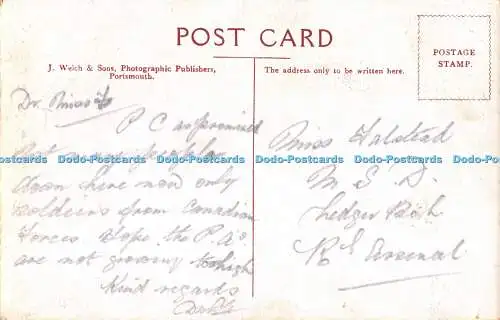 POST CARD
J. Welch & Sons, Photographic Publishers,
Portsmouth.
The address only to be written here.
POSTAGE
STAMP.
Dr. Miss
P C as Promised
Not many people
down here now only
soldiers from Canadian
Forces hope the P.
are not growing to high
Kind regards
Miss Halstead
M S D.
Ledger
Rl Arsenal
Dodo-Postcards Dodo-Postcards Dodo-Postcards Dodo-Postcards Dodo-Postcards